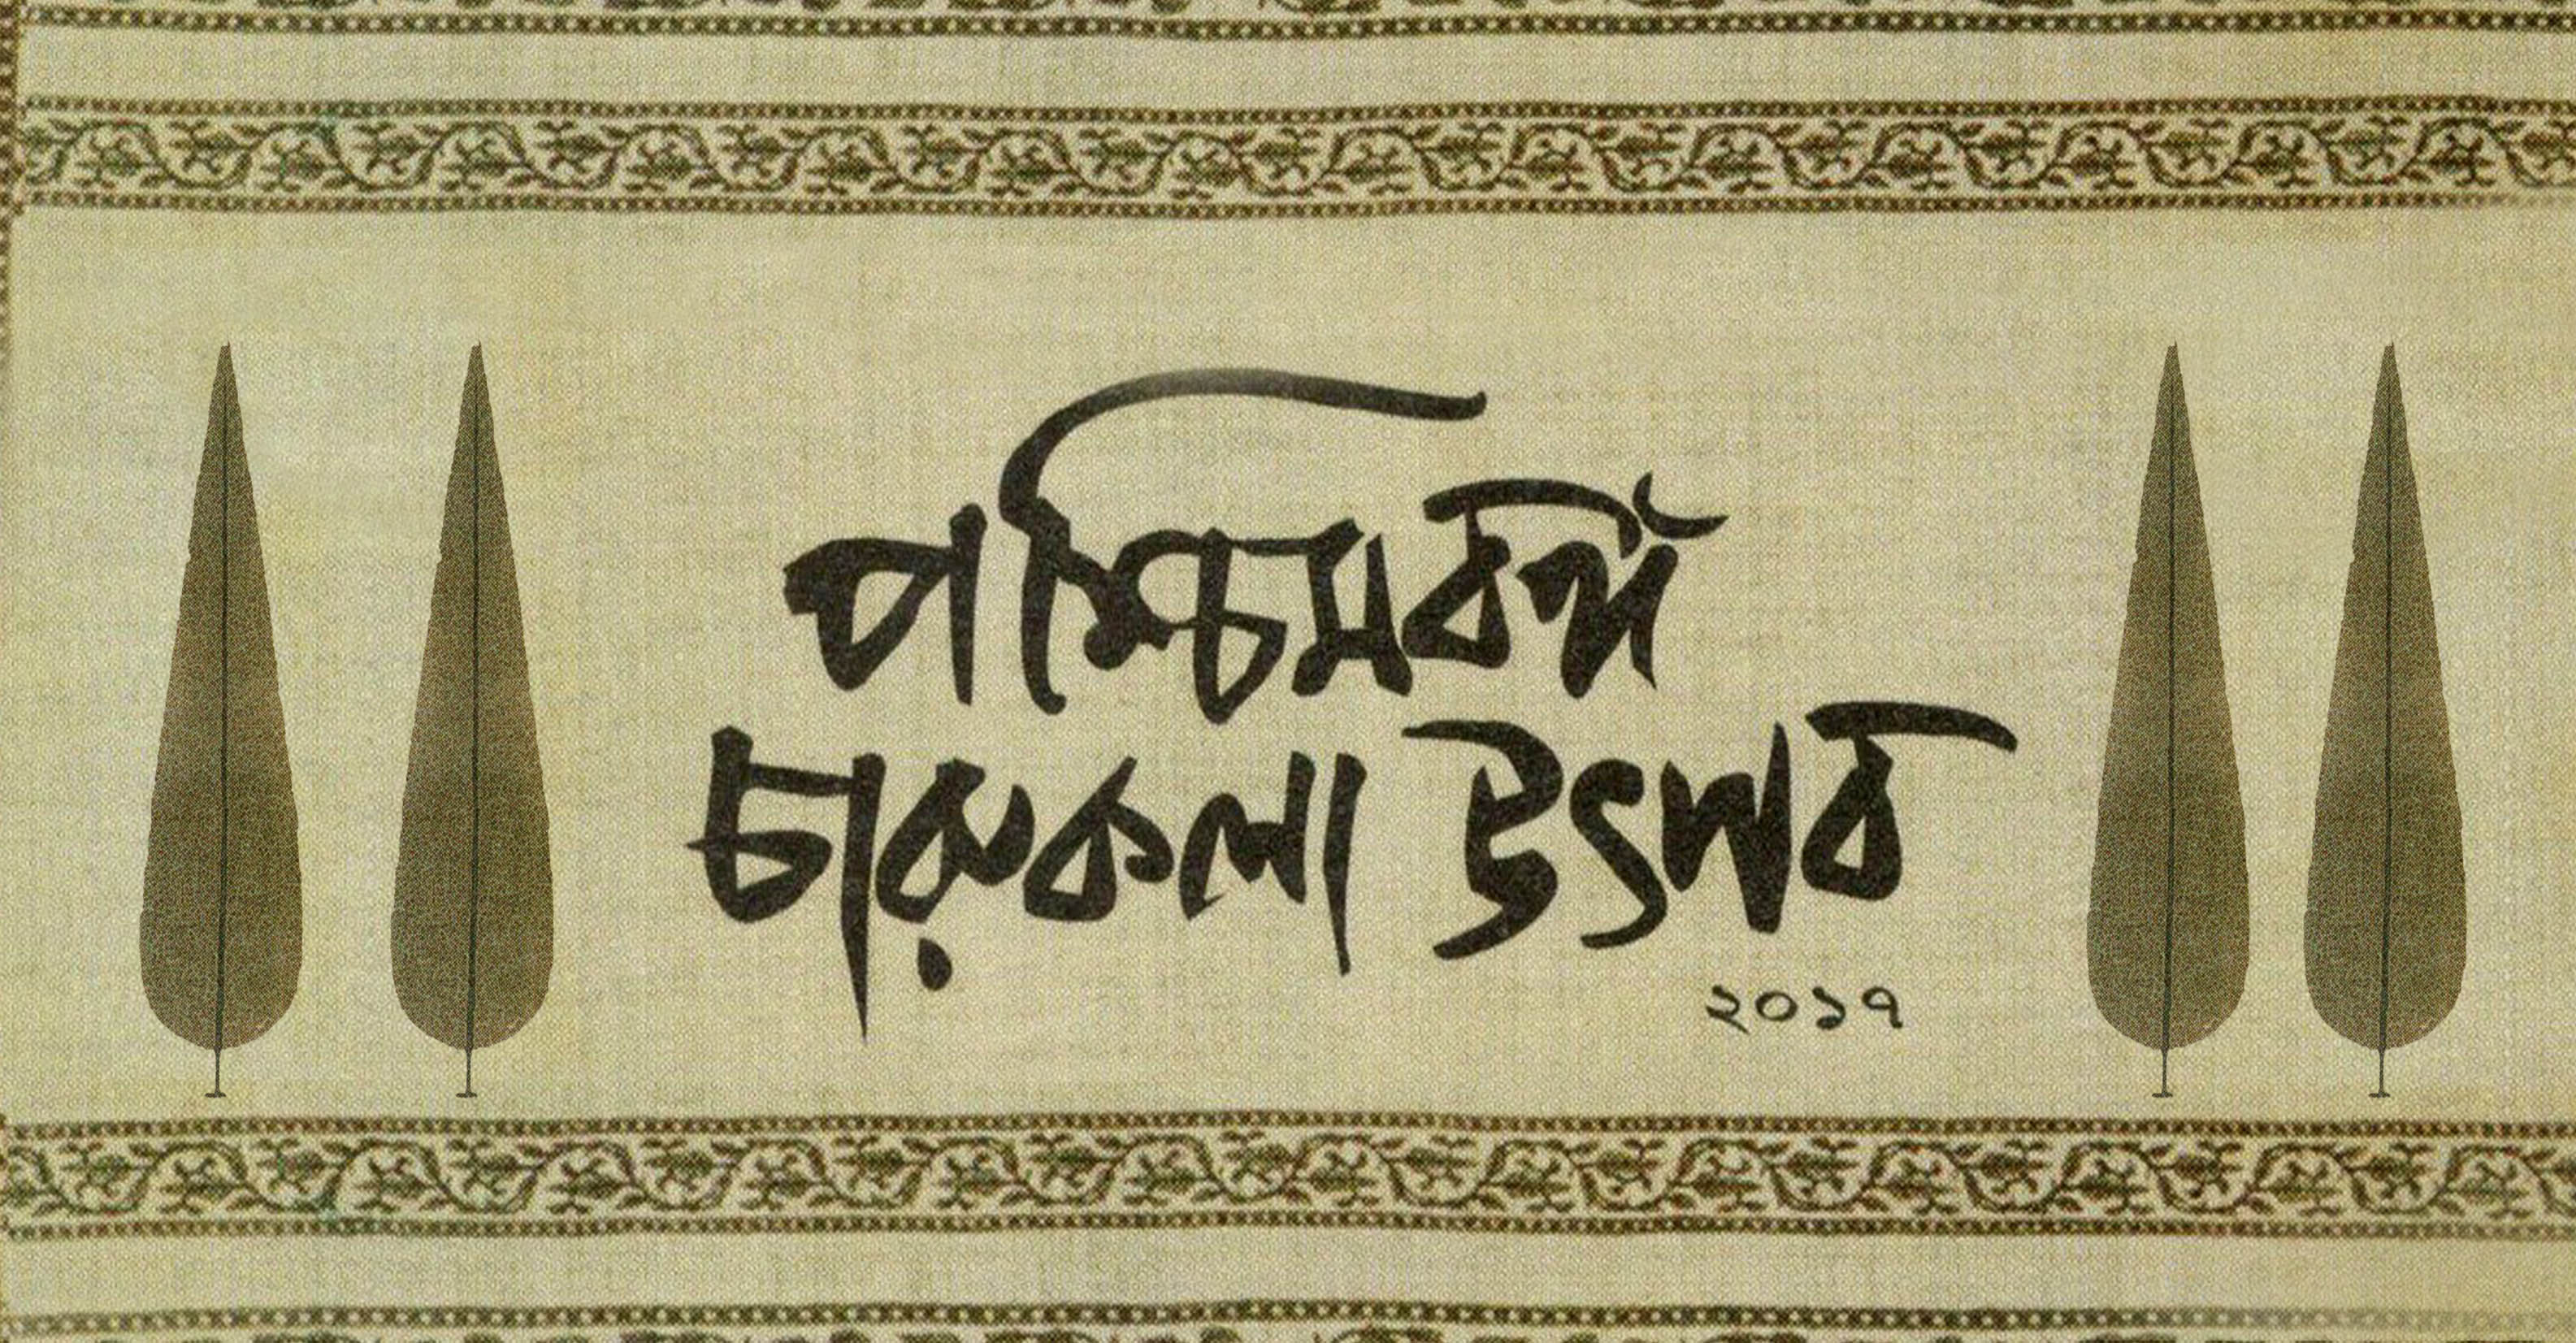 পশ্চিমবঙ্গ
চারুকলা উৎসব
২০১৭